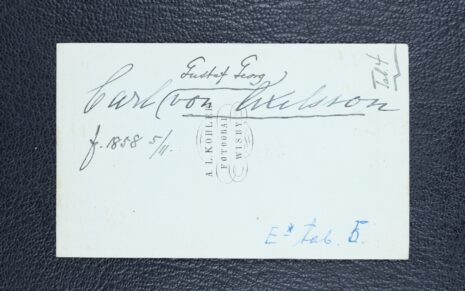 Tab 4
Gustaf Georg
Carl von Axelson
f. 1858 5/11.
A. L. KOHLER
FOTOGRAF
WISBY
Tab. 5.